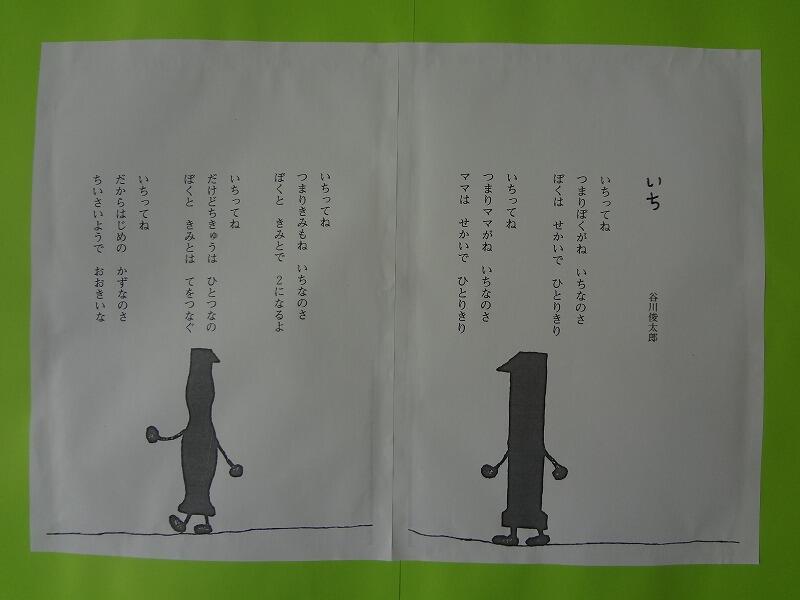 いち
谷川俊太郎
いちってね
つまりぼくがね　いちなのさ
ぼくは　せかいで　ひとりきり
いちってね
つまりママがね　いちなのさ
ママは　せかいで　ひとりきり
いちってね
つまりきみもね　いちなのさ
ぼくと　きみとで　２になるよ
いちってね
だけどちきゅうは　ひとつなの
ぼくと　きみとは　てをつなぐ
いちってね
だからはじめの　かずなのさ
ちいさいようで　おおきいな